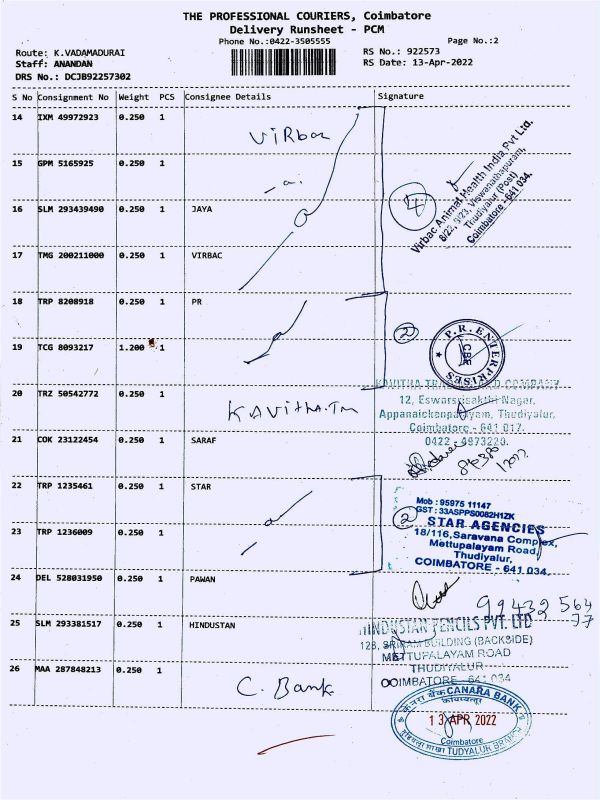 THE PROFESSIONAL COURIERS, Coimbatore
Delivery Runsheet - PCM
Phone No.:0422-3505555 Page No.:2
Route: K.VADAMADURAI RS No.: 922573
Staff: ANANDAN RS Date: 13-Apr-2022
DRS No.: DCJB92257302
S No Consignment No Weight PCS Consignee Details Signature
14 IXM 49972923 0.250 1 Virbac
15 GPM 5165925 0.250 1
16 SLM 293439490 0.250 1 JAYA
17 TMG 200211000 0.250 1 VIRBAC
4
Virbac Animal Health India Pvt Ltd.
8/22, 9/23, Viswanathapuram,
Thudiyalur (Post)
Coimbatore - 641 034.
18 TRP 8208918 0.250 1 PR
19 TCG 8093217 1.200 1
2
P.R. ENTERPRISES
CBE
20 TRZ 50542772 0.250 1 KAVITHA.Tm
KAVITHA COMPANY
12, Eswarsisakthi Nagar,
Appanaickenpalayam, Thudiyalur,
Coimbatore - 641 017.
0422 - 4973220.
21 COK 23122454 0.250 1 SARAF
22 TRP 1235461 0.250 1 STAR
23 TRP 1236009 0.250 1
2
Mob : 95975 11147
GST : 33ASPPS0082H1ZK
STAR AGENCIES
18/116, Saravana Complex,
Mettupalayam Road,
Thudiyalur,
COIMBATORE - 641 034.
24 DEL 528031950 0.250 1 PAWAN
99432 564
77
25 SLM 293381517 0.250 1 HINDUSTAN
HINDUSTAN PENCILS PVT. LTD
128, SRIRAM BUILDING (BACKSIDE)
METTUPALAYAM ROAD
THUDIYALUR
COIMBATORE - 641 034
26 MAA 287848213 0.250 1 C. Bank
केनरा बैंक CANARA BANK
कोयम्बत्तूर
13 APR 2022
Coimbatore
शाखा TUDYALUR BRANCH